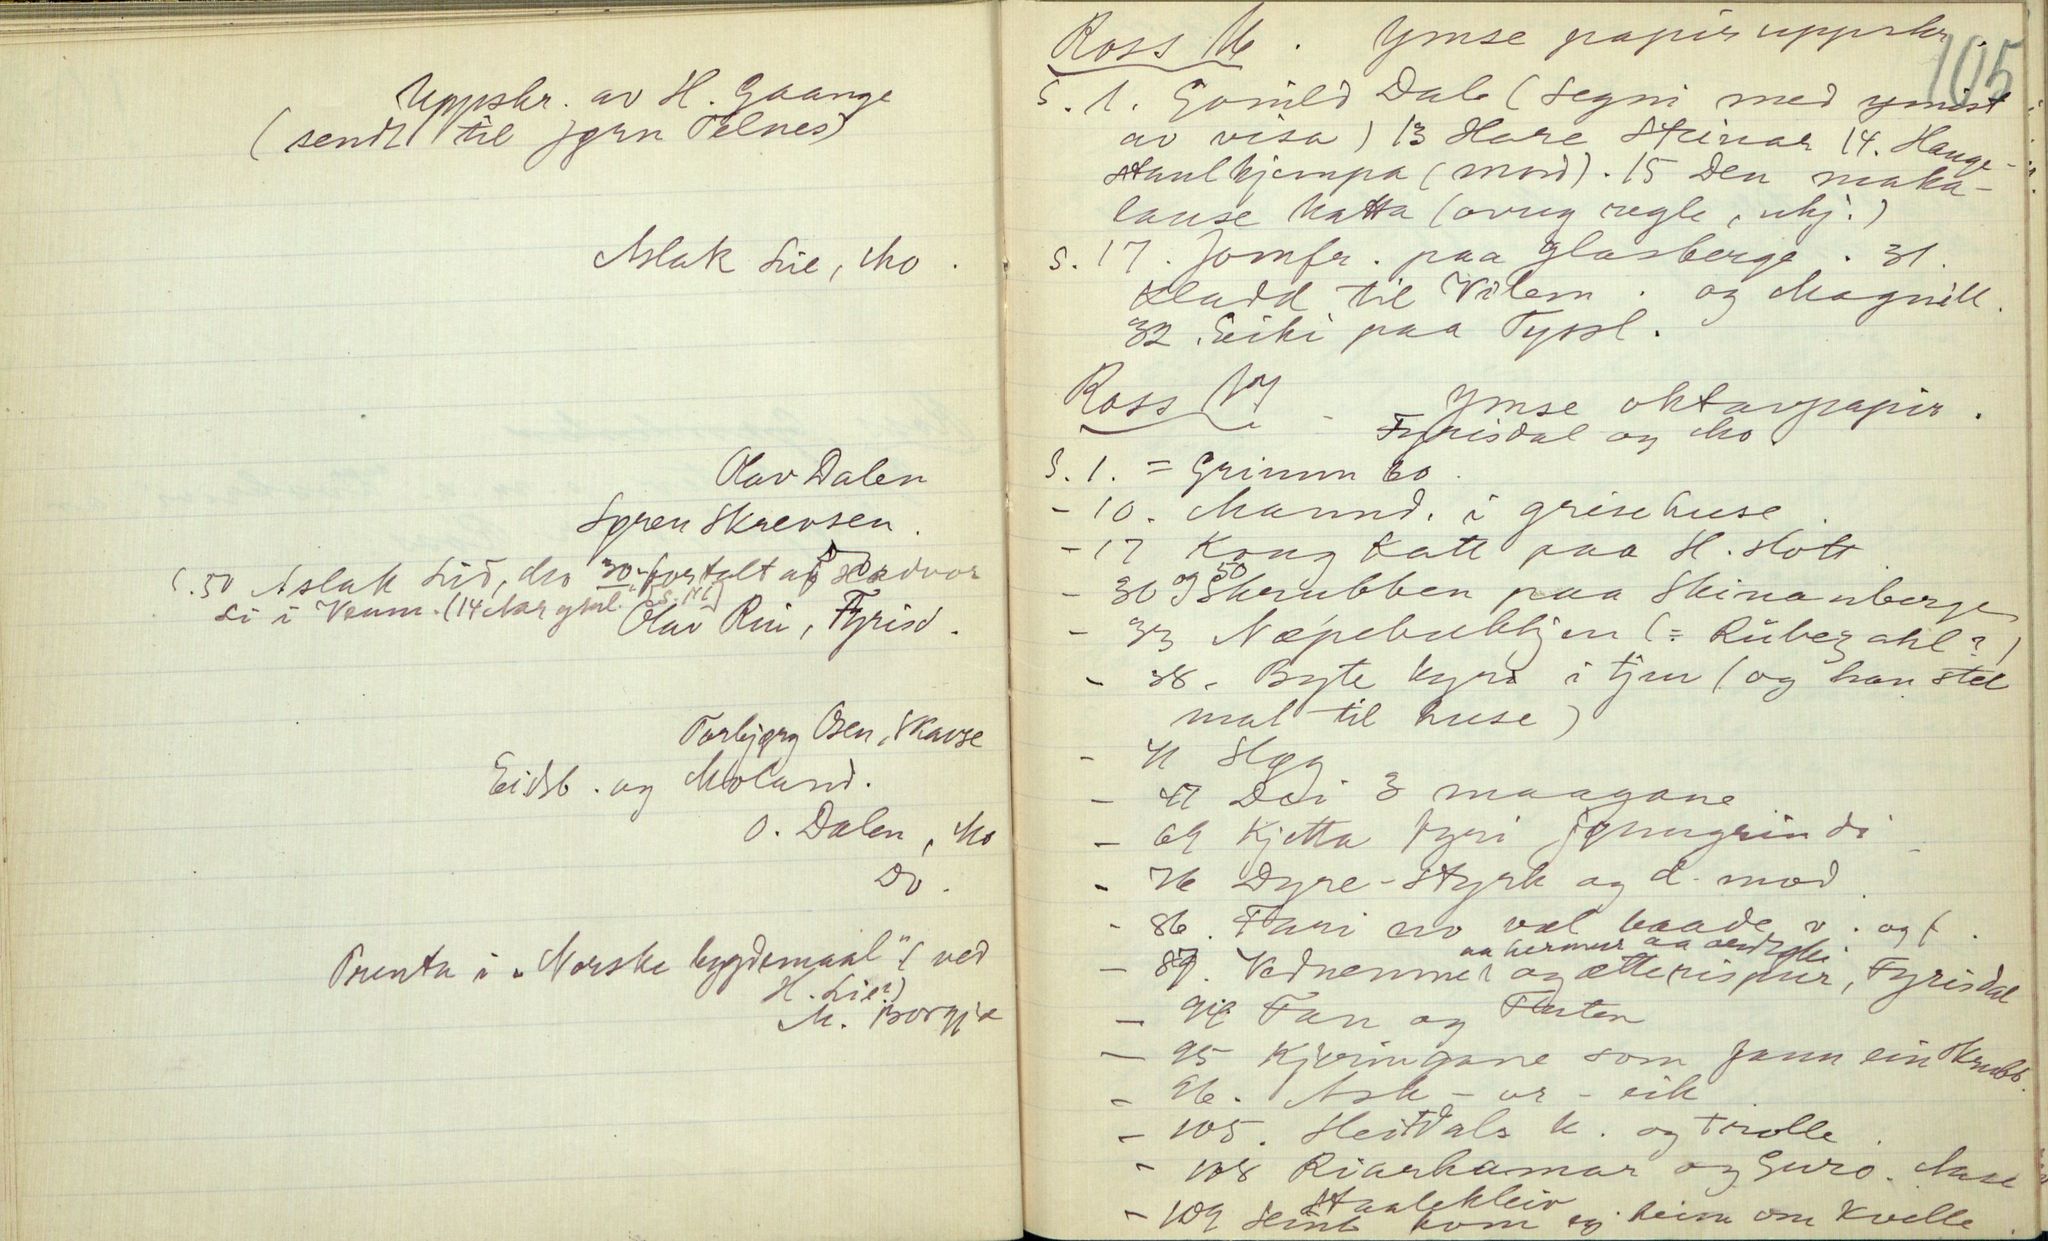 Uppskr. av H. Gaange
(sendt til Jørn Telnes)
Aslak Lie, Mo.
Olav Dalen
Søren Skrevsen.
S. 50 Aslak Lid, Mo 30 fortalt av
Li i Veum. (14 Aar gml.
Olav Rui, Fyrisd.
Torbjørg Osen, Skavse
Eidsb. og Moland.
O. Dalen, Mo
Do.
Prenta i „Norske bygdemaal" (ved
H. Lie?)
M. Borgja
105
Ross VI. Ymse papir uppskr.
S. 1. Gonild Dale (Segni med ymist
av visa) 13 Hare Steinar 14. Hauge-
stuulkjempa (mord). 15 Den maka-
lause katta (ovug regle, ukj.)
S. 17. Jomfr. paa glasberge. 31.
Kladd til Vilem. og Magnill.
32. Eiki paa Tyssl.
Ross VII - Ymse oktavpapir.
Fyrisdal og Mo.
S. 1. = Grimm 60.
- 10. Mannd. i grisehuse.
- 17 Kong Katt paa H. slott
- 30 og 50 Skrubben paa Skinanberge
- 33 Næpebukkjen (= Rübezahl?)
- 38. Byte kyrd i tjur (og han stel
mat til huse)
- 41 Slag
- 47 Dei 3 maagane
- 69 Kjetta fyri jønngrindi
- 76 Dyre-Styrk og d. mod.
- 86. Fari no vel baade v. og f.
- 89. Vednemner og ætterispur, Fyrisdal
- 94 Fan og Fanten
- 95 Kjeringane som fann ein Skrubb.
- 96. Ask - or - eik
- 105. Heitdals k. og trolle.
- 108 Riarhamar og Guro. Aase
Staalekleiv
- 109 Seint kom eg heim om kvelle.